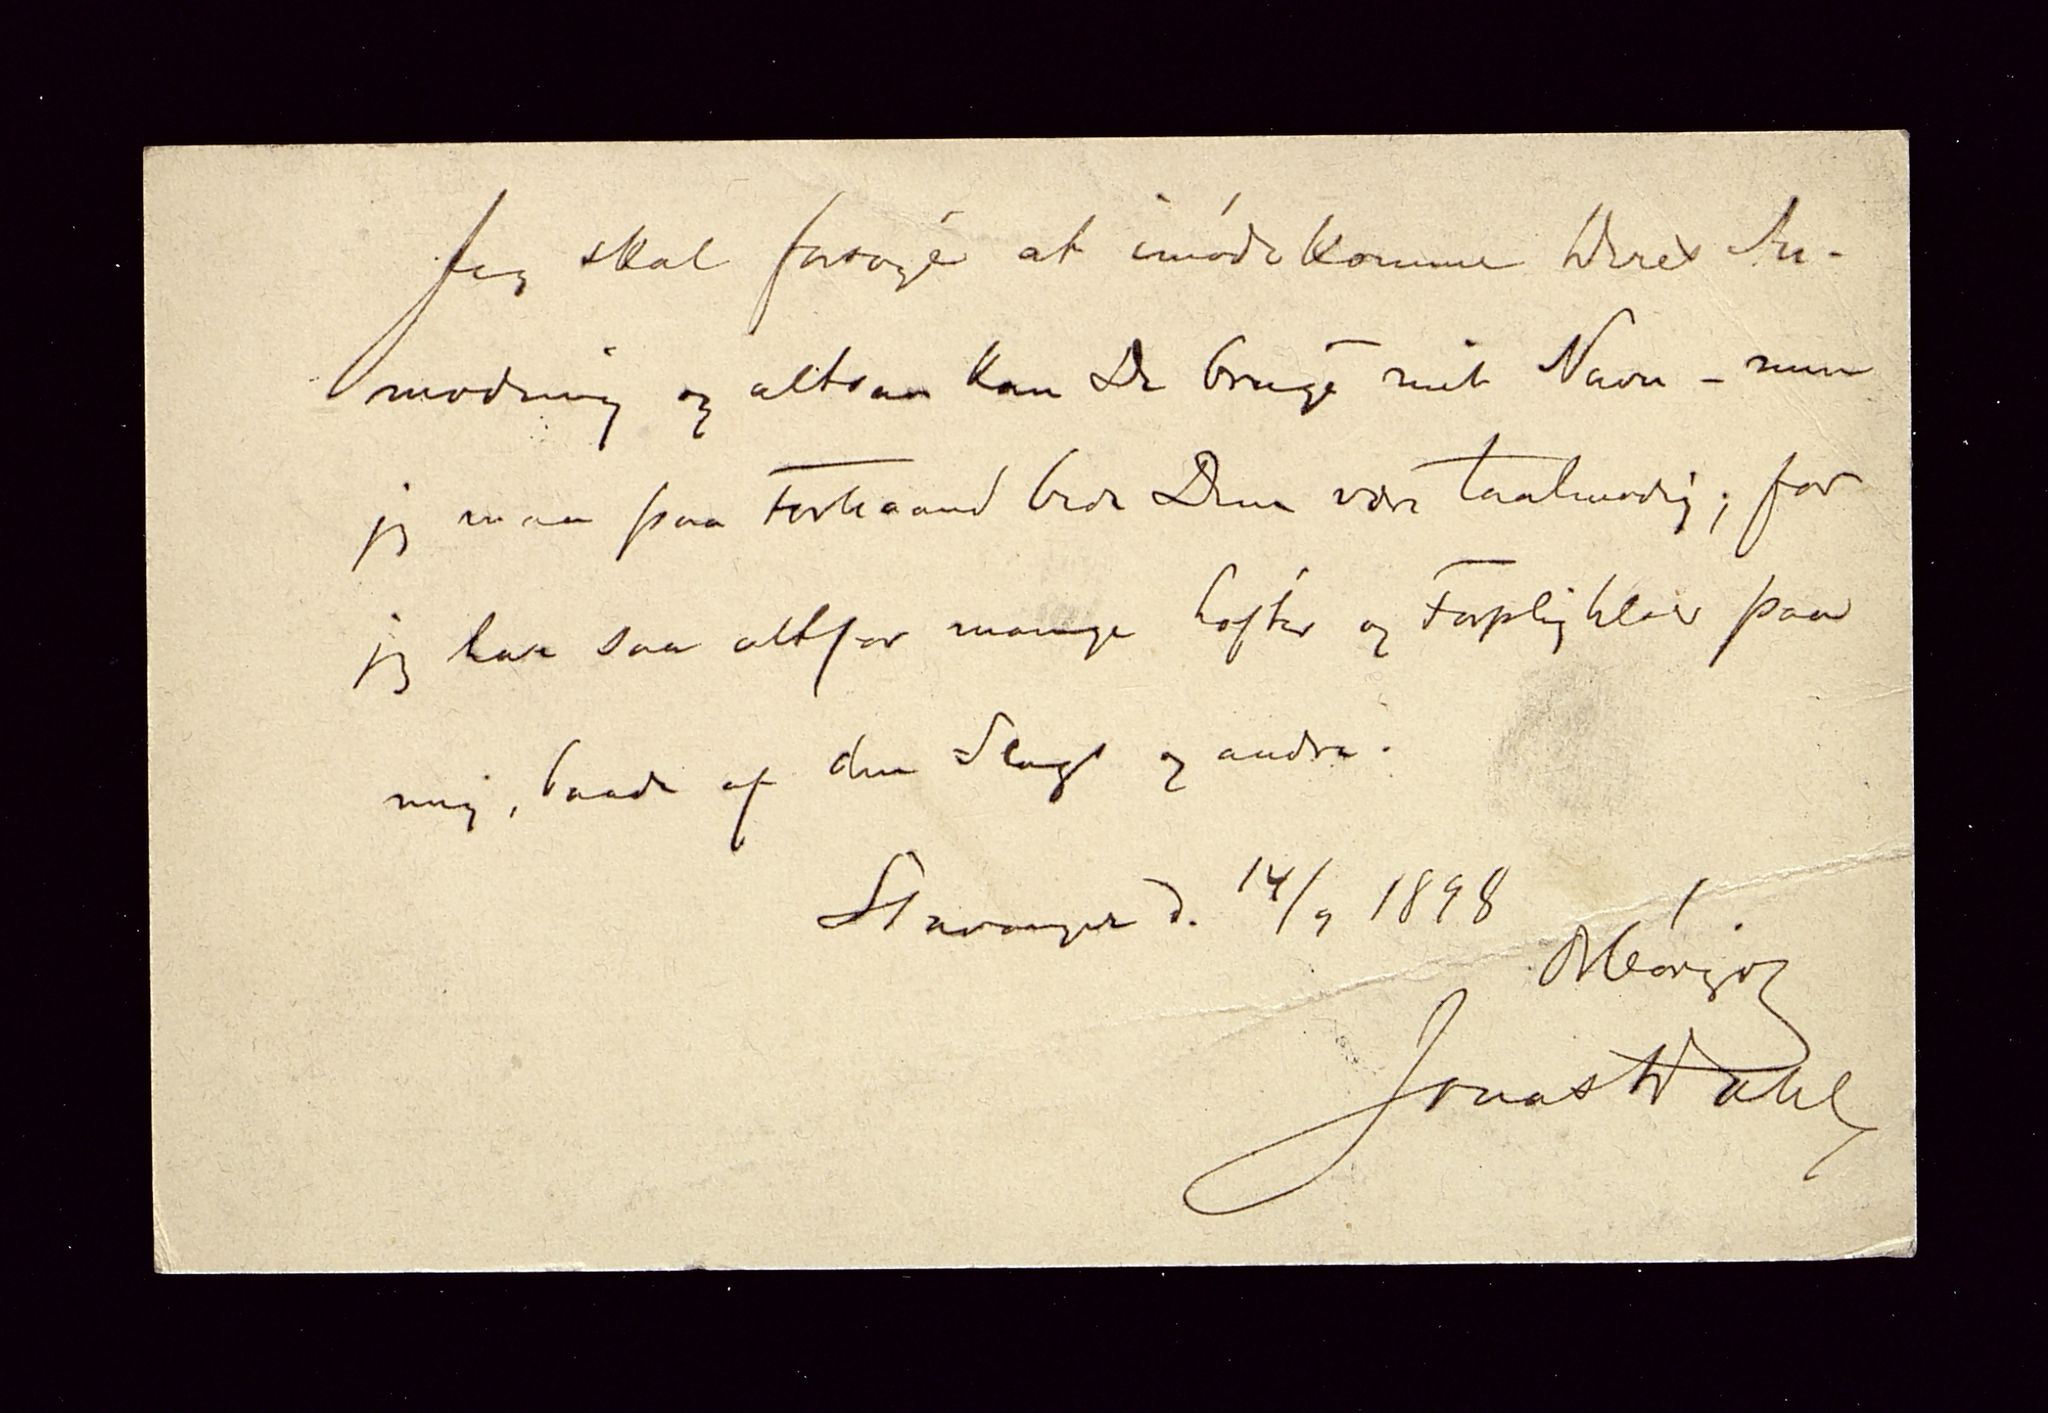 Jeg skal forsøge at imødekomme Deres An-
modning og altsaa kan De bruge mit Navn - men
jeg maa paa Forhaand bede Dem være taalmodig; for
jeg har saa altfor mange Løfter og Forpligtelser paa
mig, baade af den Slags og andre.
Stavanger d. 14/9 1898
Ærbødigst
Jonas Dahl